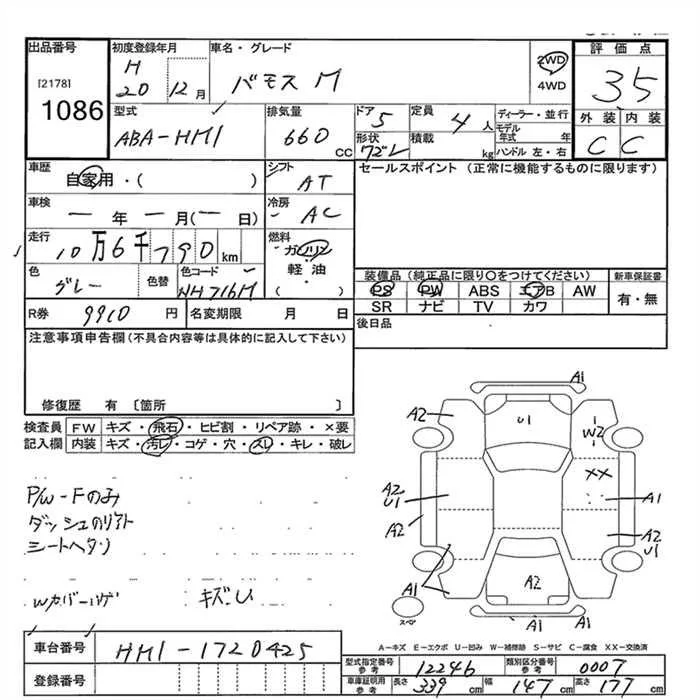 出品番号 初度登録年月 車名・グレード 2WD 4WD 評価点
[2178] 1086 H 20 12月 バモス M 35
型式 排気量 ドア 定員 ディーラー・並行 外装 内装
ABA-HM1 660 CC 5 4人 モデル年式 年 C C
形状 ワゴン 積載 kg ハンドル 左・右
車歴 自家用・( ) シフト AT セールスポイント (正常に機能するものに限ります)
車検 一年一月(一日) 冷房 AC
走行 10万6千790km 燃料 ガソリン 軽油 ( )
色 グレー 色替 色コード NH716M
装備品 (純正品に限り○をつけてください) 新車保証書
PS PW ABS エアB AW 有・無
SR ナビ TV カワ
R券 9910円 名変期限 月 日 後日品
注意事項申告欄 (不具合内容等は具体的に記入して下さい)
修復歴 有 [箇所 ]
検査員記入欄 FW キズ・飛石・ヒビ割・リペア跡・×要
内装 キズ・汚レ・コゲ・穴・スレ・キレ・破レ
A1
A2 U1 W2
XX
A2 U1 A1
A2 A2 U1
A1 A2
A1 A1
スペア
P/W-Fのみ
シートヘタリ
Wカバーハゲ キズ・U
A-キズ E-エクボ U-凹み W-補修跡 S-サビ C-腐食 XX-交換済
車台番号 HM1-1720425
型式指定番号 参考 12246 類別区分番号 参考 0007
登録番号
車庫証明用 参考 長さ 339cm 幅 147cm 高さ 177cm